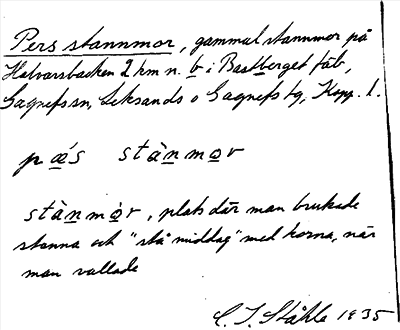 Pers stannmor, gammal stannmor på
Halvarsbacken 2 km n. b i Bastberget fäb,
Gagnefs sn, Leksands o Gagnefs tg, Kopp. l.
pǽs stànmor
stànmòr, plats där man brukade
stanna och "stå middag" med korna, när
man vallade
C. I. Ståhle 1935